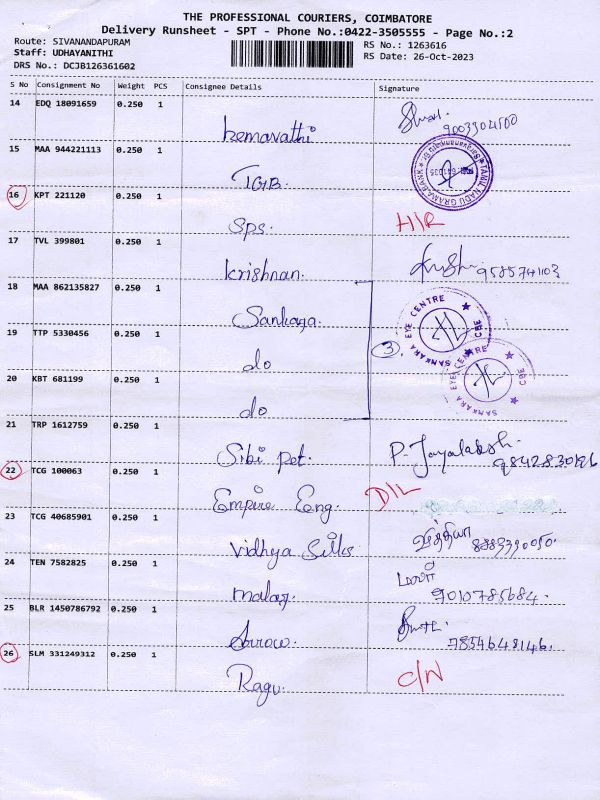 THE PROFESSIONAL COURIERS, COIMBATORE
Delivery Runsheet - SPT - Phone No.:0422-3505555 - Page No.:2
Route: SIVANANDAPURAM
Staff: UDHAYANITHI
DRS No.: DCJB126361602
RS No.: 1263616
RS Date: 26-Oct-2023
S No Consignment No Weight PCS Consignee Details Signature
14 EDQ 18091659 0.250 1
hemavathi 9003304500
15 MAA 944221113 0.250 1
TGB. TAMIL NADU GRAMA BANK
16 KPT 221120 0.250 1
Sps. H/R
17 TVL 399801 0.250 1
krishnan. 9585741103
18 MAA 862135827 0.250 1
Sankara. SANKARA EYE CENTRE CBE
19 TTP 5330456 0.250 1
do 3 SANKARA EYE CENTRE CBE
20 KBT 681199 0.250 1
do
21 TRP 1612759 0.250 1
Sibi pet. P. Jayalaksh.
22 TCG 100063 0.250 1
Empire Eng. D/L
23 TCG 40685901 0.250 1
Vidhya Silks வித்யா
24 TEN 7582825 0.250 1
malar. மலர் 9010785684.
25 BLR 1450786792 0.250 1
Arrow. 7854648146.
26 SLM 331249312 0.250 1
Ragu. C/N